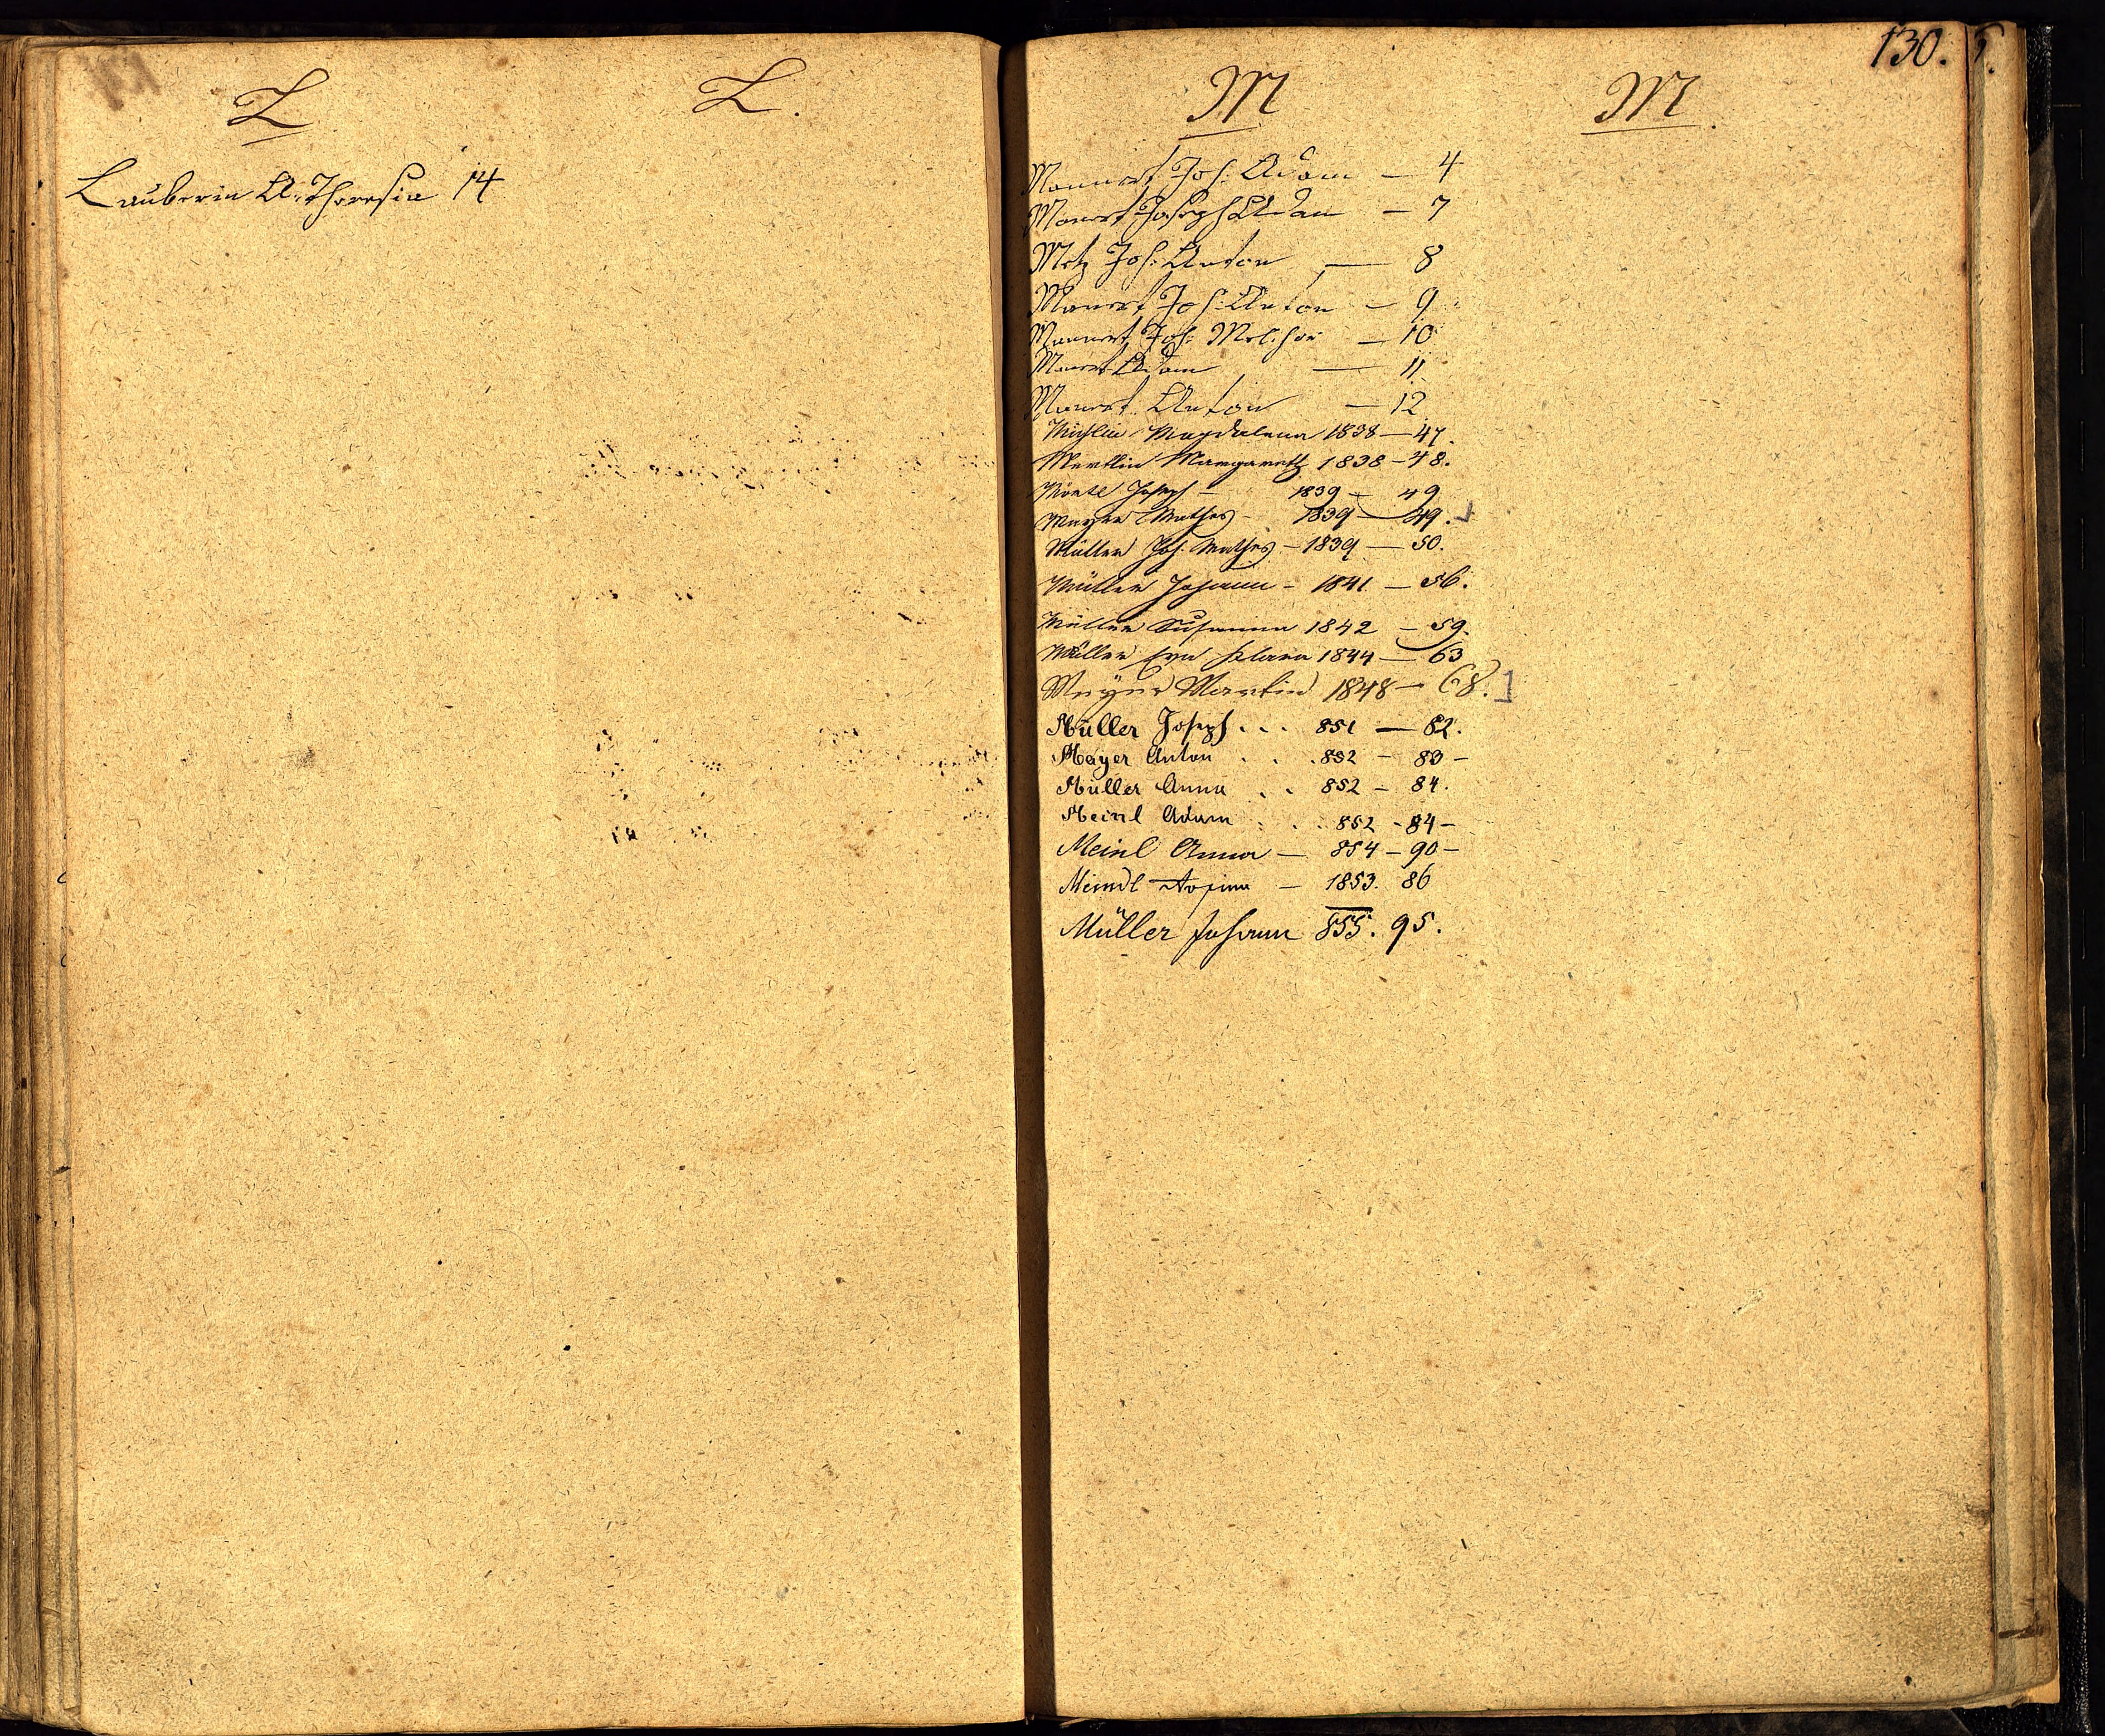 L L.
Lauberin A. Theresia 14
130.
M M.
Mannert Joh: Adam — 4
Manert Joseph Adam — 7
Metz Joh: Anton — 8
Manert Joh: Anton — 9
Mannert Joh: Melchior — 10
Manert Adam — 11
Manert Anton — 12
Magdalena 1838 — 47.
Margareth 1838 — 48.
Joseph — 1839 — 49
Mayer Mathes — 1839 — 49.
Müller Joh. Mathes — 1839 — 50.
Müller Johann — 1841 — 56.
Müller Susanna 1842 — 59.
Müller Eva Klara 1844 — 63
Mayer Martin 1848 — 68.
Müller Joseph . . . 851 — 82.
Mayer Anton . . . 852 — 83 —
Müller Anna . . 852 — 84.
Meinl Adam . . . 852 - 84 —
Meinl Anna — 854 — 90 —
Meindl — 1853. 86
Müller Johann 855. 95.